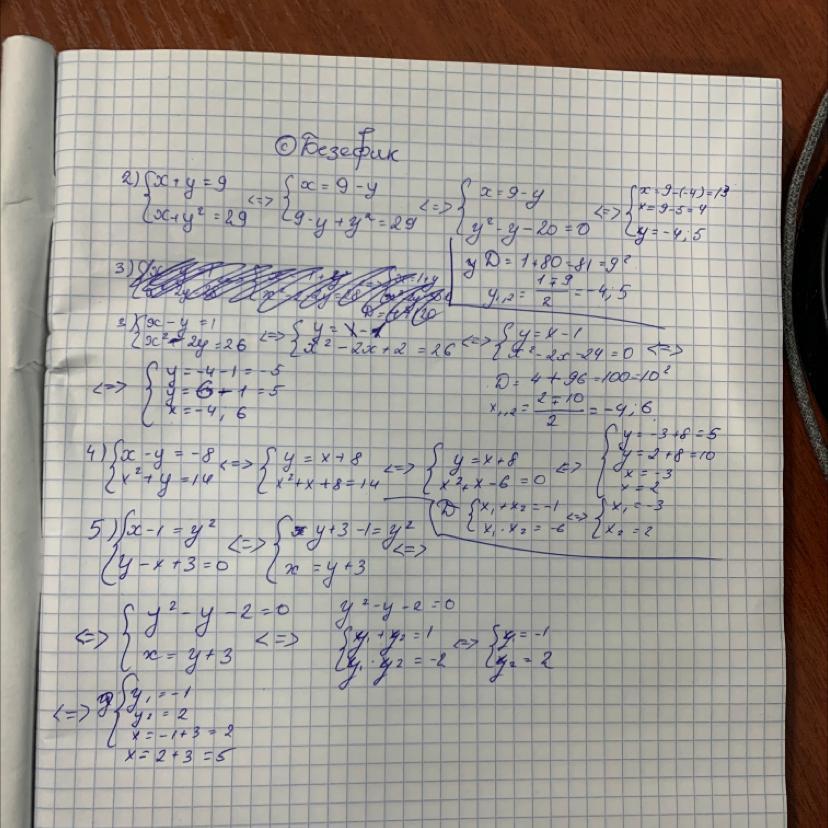 © Безефик
2) {x+y=9 x+y²=29 <=> {x=9-y 9-y+y²=29 <=> {x=9-y y²-y-20=0 <=> {x=9-(-4)=13 x=9-5=4 y=-4; 5
y D=1+80=81=9²
y₁,₂ = (1∓9)/2 = -4; 5
3)
3) {x-y=1 x²-2y=26 <=> {y=x-1 x²-2x+2=26 <=> {y=x-1 x²-2x-24=0 <=>
D=4+96=100=10²
x₁,₂ = (2∓10)/2 = -4; 6
<=> {y=-4-1=-5 y=6-1=5 x=-4, 6
4) {x-y=-8 x²+y=14 <=> {y=x+8 x²+x+8=14 <=> {y=x+8 x²+x-6=0 <=> {y=-3+8=5 y=2+8=10 x=-3 x=2
D {x₁+x₂=-1 x₁·x₂=-6 <=> {x₁=-3 x₂=2
5) {x-1=y² y-x+3=0 <=> {y+3-1=y² x=y+3 <=>
<=> {y²-y-2=0 x=y+3 <=> y²-y-2=0 {y₁+y₂=1 y₁·y₂=-2 <=> {y₁=-1 y₂=2
<=> {y₁=-1 y₂=2 x=-1+3=2 x=2+3=5